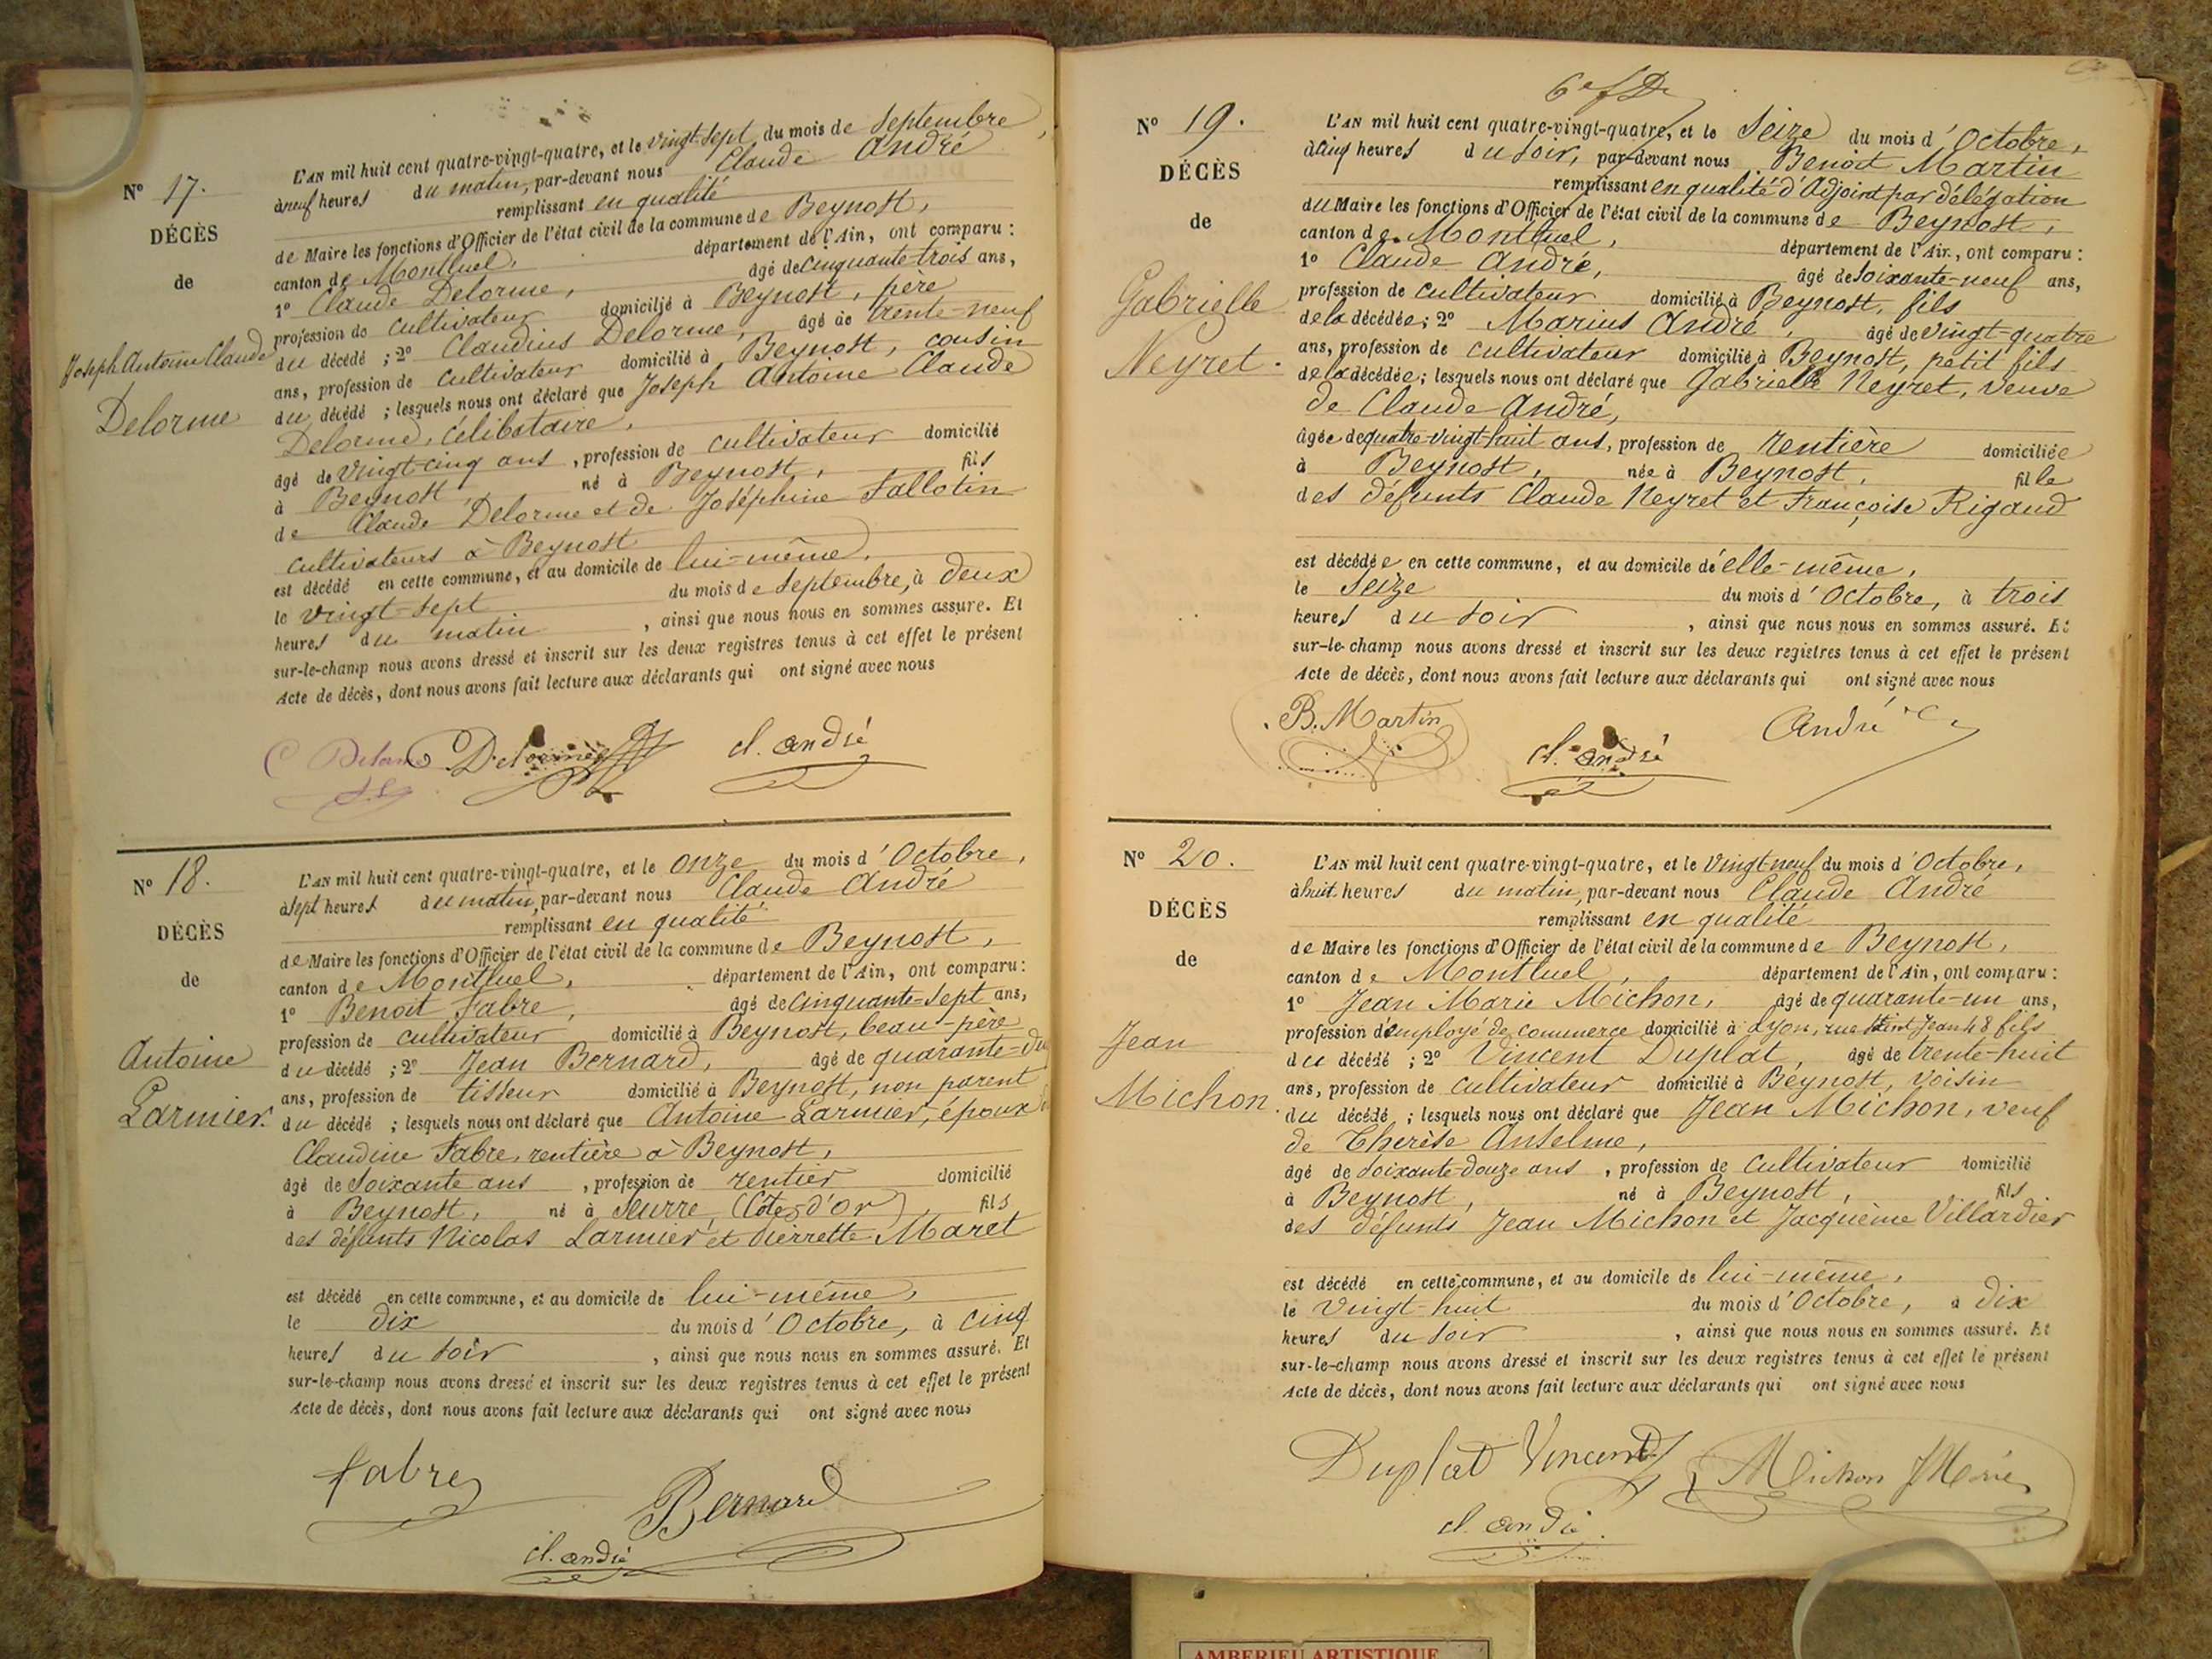 Nº 17.
DÉCÈS
de
Joseph Antoine Claude
Delorme
L'AN mil huit cent quatre-vingt-quatre, et le vingt-sept du mois de Septembre,
à neuf heures du matin, par-devant nous Claude André
remplissant en qualité
de Maire les fonctions d'Officier de l'état civil de la commune de Beynost,
canton de Montluel, département de l'Ain, ont comparu :
1º Claude Delorme, âgé de cinquante trois ans,
profession de cultivateur domicilié à Beynost, père
du décédé ; 2º Claudius Delorme, âgé de trente-neuf
ans, profession de cultivateur domicilié à Beynost, cousin
du décédé ; lesquels nous ont déclaré que Joseph Antoine Claude
Delorme, célibataire,
âgé de vingt-cinq ans, profession de cultivateur domicilié
à Beynost, né à Beynost, fils
de Claude Delorme et de Joséphine Fallotin
cultivateurs à Beynost
est décédé en cette commune, et au domicile de lui-même,
le vingt-sept du mois de Septembre, à deux
heures du matin, ainsi que nous nous en sommes assuré. Et
sur-le-champ nous avons dressé et inscrit sur les deux registres tenus à cet effet le présent
Acte de décès, dont nous avons fait lecture aux déclarants qui ont signé avec nous
Delorme cl. andré
Nº 18.
DÉCÈS
de
Antoine
Larmier.
L'AN mil huit cent quatre-vingt-quatre, et le onze du mois d'Octobre,
à sept heures du matin, par-devant nous Claude André
remplissant en qualité
de Maire les fonctions d'Officier de l'état civil de la commune de Beynost,
canton de Montluel, département de l'Ain, ont comparu :
1º Benoit Fabre, âgé de cinquante-sept ans,
profession de cultivateur domicilié à Beynost, beau-père
du décédé ; 2º Jean Bernard, âgé de quarante-
ans, profession de tisseur domicilié à Beynost, non parent
du décédé ; lesquels nous ont déclaré que Antoine Larmier, époux
Claudine Fabre, rentière à Beynost,
âgé de soixante ans, profession de rentier domicilié
à Beynost, né à Seurre (Côte-d'or), fils
des défunts Nicolas Larmier et Pierrette Maret
est décédé en cette commune, et au domicile de lui-même,
le dix du mois d'Octobre, à cinq
heures du soir, ainsi que nous nous en sommes assuré. Et
sur-le-champ nous avons dressé et inscrit sur les deux registres tenus à cet effet le présent
Acte de décès, dont nous avons fait lecture aux déclarants qui ont signé avec nous
fabre
Bernard
cl. andré
Nº 19.
DÉCÈS
de
Gabrielle
Neyret.
L'AN mil huit cent quatre-vingt-quatre, et le Seize du mois d'Octobre,
à cinq heures du soir, par-devant nous Benoit Martin
remplissant en qualité d'Adjoint par délégation
du Maire les fonctions d'Officier de l'état civil de la commune de Beynost,
canton de Montluel, département de l'Ain, ont comparu :
1º Claude André, âgé de soixante-neuf ans,
profession de cultivateur domicilié à Beynost, fils
de la décédée ; 2º Marius André, âgé de vingt-quatre
ans, profession de cultivateur domicilié à Beynost, petit fils
de la décédée ; lesquels nous ont déclaré que Gabrielle Neyret, veuve
de Claude André,
âgée de quatre-vingt-huit ans, profession de rentière domiciliée
à Beynost, née à Beynost, fille
des défunts Claude Neyret et Françoise Rigaud
est décédée en cette commune, et au domicile d'elle-même,
le seize du mois d'Octobre, à trois
heures du soir, ainsi que nous nous en sommes assuré. Et
sur-le-champ nous avons dressé et inscrit sur les deux registres tenus à cet effet le présent
Acte de décès, dont nous avons fait lecture aux déclarants qui ont signé avec nous
B. Martin cl. andré André
Nº 20.
DÉCÈS
de
Jean
Michon.
L'AN mil huit cent quatre-vingt-quatre, et le vingt-neuf du mois d'Octobre,
à huit heures du matin, par-devant nous Claude André
remplissant en qualité
de Maire les fonctions d'Officier de l'état civil de la commune de Beynost,
canton de Montluel, département de l'Ain, ont comparu :
1º Jean Marie Michon, âgé de quarante-un ans,
profession d'employé de commerce domicilié à Lyon, rue Saint Jean 48 fils
du décédé ; 2º Vincent Duplat, âgé de trente-huit
ans, profession de cultivateur domicilié à Beynost, voisin
du décédé ; lesquels nous ont déclaré que Jean Michon, veuf
de Therèse Anselme,
âgé de soixante-douze ans, profession de cultivateur domicilié
à Beynost, né à Beynost, fils
des défunts Jean Michon et Jacquème Villardier
est décédé en cette commune, et au domicile de lui-même,
le vingt-huit du mois d'Octobre, à dix
heures du soir, ainsi que nous nous en sommes assuré. Et
sur-le-champ nous avons dressé et inscrit sur les deux registres tenus à cet effet le présent
Acte de décès, dont nous avons fait lecture aux déclarants qui ont signé avec nous
Duplat Vincent Michon JMarie
cl. andré
AMBERIEU ARTISTIQUE